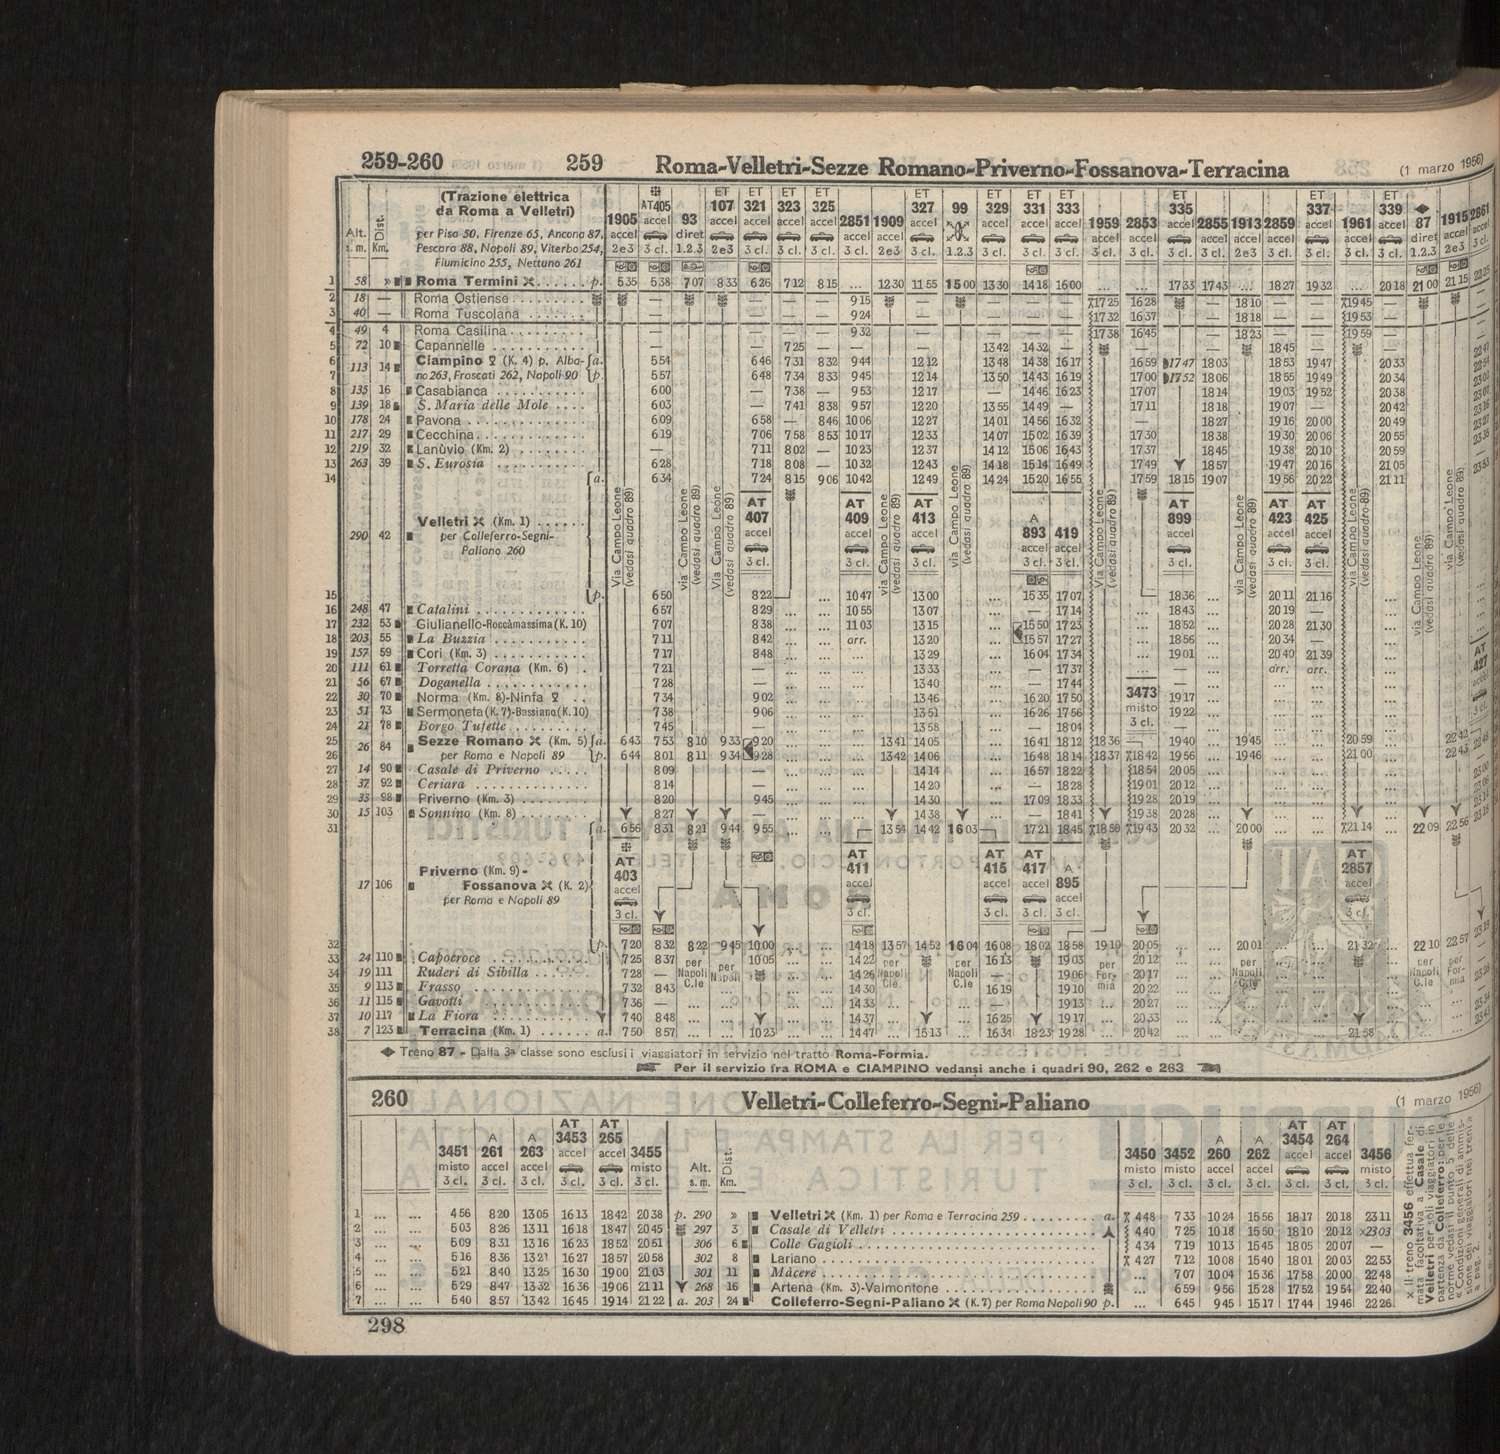 259-260 259 Roma-Velletri-Sezze Romano-Priverno-Fossanova-Terracina (1 marzo 1956)
(Trazione elettrica
da Roma a Velletri)
per Pisa 50, Firenze 65, Ancona 87,
Pescara 88, Napoli 89, Viterbo 254,
Fiumicino 255, Nettuno 261
Alt. s. m. Dist. Km.
1905 accel 2e3
AT405 accel 3 cl.
93 diret 1.2.3
ET 107 accel 2e3
ET 321 accel 3 cl.
ET 323 accel 3 cl.
ET 325 accel 3 cl.
2851 accel 3 cl.
1909 accel 2e3
ET 327 accel 3 cl.
99 1.2.3
ET 329 accel 3 cl.
ET 331 accel 3 cl.
ET 333 accel 3 cl.
1959 accel 3 cl.
2853 accel 3 cl.
ET 335 accel 3 cl.
2855 accel 3 cl.
1913 accel 2e3
2859 accel 3 cl.
ET 337 accel 3 cl.
1961 accel 3 cl.
ET 339 accel 3 cl.
87 diret 1.2.3
1915 accel 2e3
2861 accel 3 cl.
1 58 » Roma Termini p. 5 35 5 38 7 07 8 33 6 26 7 12 8 15 ... 12 30 11 55 15 00 13 30 14 18 16 00 ... ... 17 33 17 43 ... 18 27 19 32 ... 20 18 21 00 21 15
2 18 — Roma Ostiense 9 15 — 17 25 16 28 — — 18 10 — — 19 45 —
3 40 — Roma Tuscolana 9 24 17 32 16 37 18 18 19 53
4 49 4 Roma Casilina 9 32 17 38 16 45 18 23 19 59
5 72 10 Capannelle 7 25 — 13 42 14 32 — 18 45
6 113 14 Ciampino (K. 4) p. Alba- a. 5 54 6 46 7 31 8 32 9 44 12 12 13 48 14 38 16 17 16 59 17 47 18 03 18 53 19 47 20 33
7 no 263, Frascati 262, Napoli 90 p. 5 57 6 48 7 34 8 33 9 45 12 14 13 50 14 43 16 19 17 00 17 52 18 06 18 55 19 49 20 34
8 135 16 Casabianca 6 00 — 7 38 — 9 53 12 17 — 14 46 16 23 17 07 18 14 19 03 19 52 20 38
9 139 18 S. Maria delle Mole 6 03 — 7 41 8 38 9 57 12 20 13 55 14 49 — 17 11 18 18 19 07 — 20 42
10 178 24 Pavona 6 09 6 58 — 8 46 10 06 12 27 14 01 14 56 16 32 — 18 27 19 16 20 00 20 49
11 217 29 Cecchina 6 19 7 06 7 58 8 53 10 17 12 33 14 07 15 02 16 39 17 30 18 38 19 30 20 06 20 55
12 219 32 Lanùvio (Km. 2) — 7 11 8 02 — 10 23 12 37 14 12 15 06 16 43 17 37 18 45 19 38 20 10 20 59
13 263 39 S. Eurosia 6 28 7 18 8 08 — 10 32 12 43 14 18 15 14 16 49 17 49 18 57 19 47 20 16 21 05
14 a. 6 34 7 24 8 15 9 06 10 42 12 49 14 24 15 20 16 55 17 59 18 15 19 07 19 56 20 22 21 11
290 42 Velletri (Km. 1)
per Colleferro-Segni-
Paliano 260
via Campo Leone (vedasi quadro 89)
AT 407 accel 3 cl.
AT 409 accel 3 cl.
AT 413 accel 3 cl.
A 893 accel 3 cl.
419 accel 3 cl.
AT 899 accel 3 cl.
AT 423 accel 3 cl.
AT 425 accel 3 cl.
AT 427
15 p. 6 50 8 22 ... 10 47 13 00 ... 15 35 17 07 ... 18 36 ... 20 11 21 16 ...
16 248 47 Catalini 6 57 8 29 ... ... 10 55 13 07 ... — 17 14 18 43 ... 20 19 — ...
17 232 53 Giulianello-Roccàmassima (K. 10) 7 07 8 38 ... ... 11 03 13 15 ... 15 50 17 23 18 52 ... 20 28 21 30 ...
18 203 55 La Buzzia 7 11 8 42 ... ... arr. 13 20 ... 15 57 17 27 18 56 ... 20 34 — ...
19 157 59 Cori (Km. 3) 7 17 8 48 ... ... ... 13 29 ... 16 04 17 34 19 01 ... 20 40 21 39 ...
20 111 61 Torretta Corana (Km. 6) 7 21 — ... ... ... 13 33 ... — 17 37 — ... arr. arr. ...
21 56 67 Doganella 7 28 — ... ... ... 13 40 ... — 17 44 — ...
22 30 70 Norma (Km. 8)-Ninfa 7 34 9 02 ... ... ... 13 46 ... 16 20 17 50 19 17 ...
23 51 73 Sermoneta (K. 7)-Bassiano (K. 10) 7 38 9 06 ... ... ... 13 51 ... 16 26 17 56 19 22 ...
24 21 78 Borgo Tufette 7 45 — ... ... ... 13 58 ... — 18 04 — ...
3473 misto 3 cl.
25 26 84 Sezze Romano (Km. 5) a. 6 43 7 53 8 10 9 33 9 20 13 41 14 05 16 41 18 12 18 36 — 19 40 19 45 20 59 22 42
26 per Roma e Napoli 89 p. 6 44 8 01 8 11 9 34 9 28 13 42 14 06 16 48 18 14 18 37 18 42 19 56 19 46 21 00 22 43
27 14 90 Casale di Priverno 8 09 14 14 16 57 18 22 18 54 20 05
28 37 92 Ceriara 8 14 14 20 — 18 28 19 01 20 12
29 33 98 Priverno (Km. 3) 8 20 9 45 14 30 17 09 18 33 19 28 20 19
30 15 103 Sonnino (Km. 8) 8 27 — 14 38 — 18 41 19 38 20 28
31 a. 6 56 8 31 8 21 9 44 9 55 13 54 14 42 16 03 17 21 18 45 18 50 19 43 20 32 20 00 21 14 22 09 22 56
17 106 Priverno (Km. 9)-
Fossanova (K. 2)
per Roma e Napoli 89
AT 403 accel 3 cl.
AT 411 accel 3 cl.
AT 415 accel 3 cl.
AT 417 accel 3 cl.
A 895 accel 3 cl.
AT 2857 accel 3 cl.
32 p. 7 20 8 32 8 22 9 45 10 00 ... ... 14 18 13 57 14 52 16 04 16 08 18 02 18 58 19 10 20 05 ... ... 20 01 ... ... 21 32 ... 22 10 22 57
33 24 110 Capocroce 7 25 8 37 per Napoli C.le per Napoli 10 05 ... 14 22 per Napoli C.le per Napoli C.le 16 13 19 03 per For-mia 20 12 per Napoli C.le per Napoli C.le per For-mia
34 19 111 Ruderi di Sibilla 7 28 — 14 26 — 19 06 20 17
35 9 113 Frasso 7 32 8 43 14 30 16 19 19 10 20 22
36 11 115 Gavotti 7 36 — 14 33 — 19 13 20 27
37 10 117 La Fiora 7 40 8 48 14 37 16 25 19 17 20 33
38 7 123 Terracina (Km. 1) a. 7 50 8 57 ... ... 10 23 ... ... 14 47 ... 15 13 ... 16 34 18 23 19 28 ... 20 42 ... 21 58
Treno 87 - Dalla 3a classe sono esclusi i viaggiatori in servizio nel tratto Roma-Formia.
Per il servizio fra ROMA e CIAMPINO vedansi anche i quadri 90, 262 e 263
260 Velletri-Colleferro-Segni-Paliano (1 marzo 1956)
3451 misto 3 cl.
A 261 accel 3 cl.
A 263 accel 3 cl.
AT 3453 accel 3 cl.
AT 265 accel 3 cl.
3455 misto 3 cl.
Alt. s. m. Dist. Km.
3450 misto 3 cl.
3452 misto 3 cl.
A 260 accel 3 cl.
A 262 accel 3 cl.
AT 3454 accel 3 cl.
AT 264 accel 3 cl.
3456 misto 3 cl.
1 ... ... 4 56 8 20 13 05 16 13 18 42 20 38 p. 290 » Velletri (Km. 1) per Roma e Terracina 259 a. 4 48 7 33 10 24 15 56 18 17 20 18 23 11
2 ... ... 5 03 8 26 13 11 16 18 18 47 20 45 297 3 Casale di Velletri 4 40 7 25 10 18 15 50 18 10 20 12 x23 03
3 ... ... 5 09 8 31 13 16 16 23 18 52 20 51 306 6 Colle Gagioli 4 34 7 19 10 13 15 45 18 05 20 07 —
4 ... ... 5 16 8 36 13 21 16 27 18 57 20 58 302 8 Lariano 4 27 7 12 10 08 15 40 18 01 20 03 22 53
5 ... ... 5 21 8 40 13 25 16 30 19 00 21 03 301 11 Màcere ... 7 07 10 04 15 36 17 58 20 00 22 48
6 ... ... 5 29 8 47 13 32 16 36 19 06 21 11 268 16 Artena (Km. 3)-Valmontone ... 6 59 9 56 15 28 17 52 19 54 22 40
7 ... ... 5 40 8 57 13 42 16 45 19 14 21 22 a. 203 24 Colleferro-Segni-Paliano (K. 7) per Roma Napoli 90 p. ... 6 45 9 45 15 17 17 44 19 46 22 26
x Il treno 3456 effettua fer-
mata facoltativa a Casale di
Velletri per soli viaggiatori in
partenza da Colleferro; per le
norme vedasi il punto 5 delle
« Condizioni generali di ammis-
sione dei viaggiatori nei treni »
a pag. 2.
298